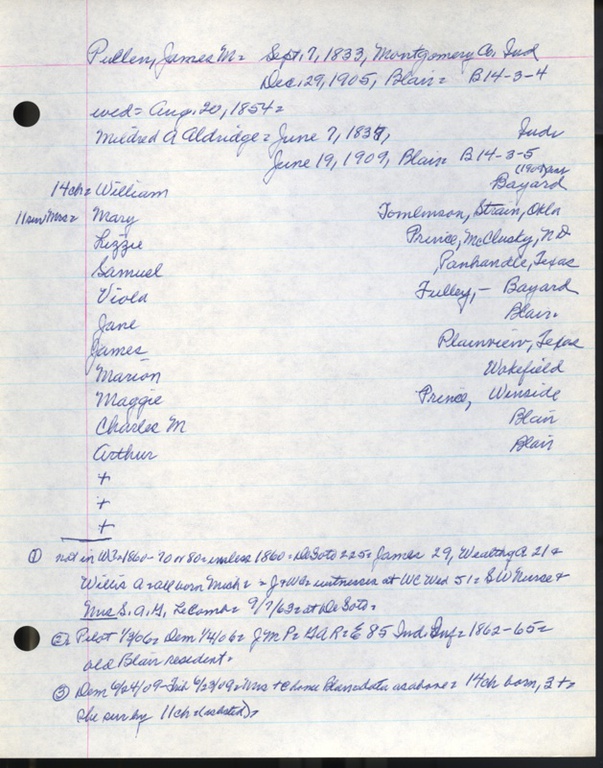 Pullen, James M= Sept. 7, 1833, Montgomery Co, Ind
Dec. 29, 1905, Blair= B14-3-4
wed= Aug. 20, 1854=
Mildred A Aldridge= June 7, 1837, Ind=
June 19, 1909, Blair= B14-3-5
14ch= William Bayard
11surv Mrs= Mary Tomlinson, Strain, Okla
Lizzie Prince, McClusky, ND
Samuel Panhandle, Texas
Viola Fulley, - Bayard
Jane Blair=
James Plainview, Texas
Marion Wakefield
Maggie Prince, Winside
Charles M Blair
Arthur Blair
+
+
+
① not in WC= 1860-70 or 80= unless 1860= DeSoto 225= James 29, Wealthy A 21 &
Willis A= all born = J & W= witnesses at WC Wed 51= SW Nurse &
Mrs S. A. H. LeComb= 9/7/62= at DeSoto=
② Pilot 1/3/06= Dem 1/4/06= J M P= GAR= E 85 Ind Inf= 1862-65=
old Blair resident=
③ Dem 6/24/09 - Trib 6/23/09= Mrs + @ home Blair= data as above= 14ch born, 3+=
she surv by 11ch= (as listed)=